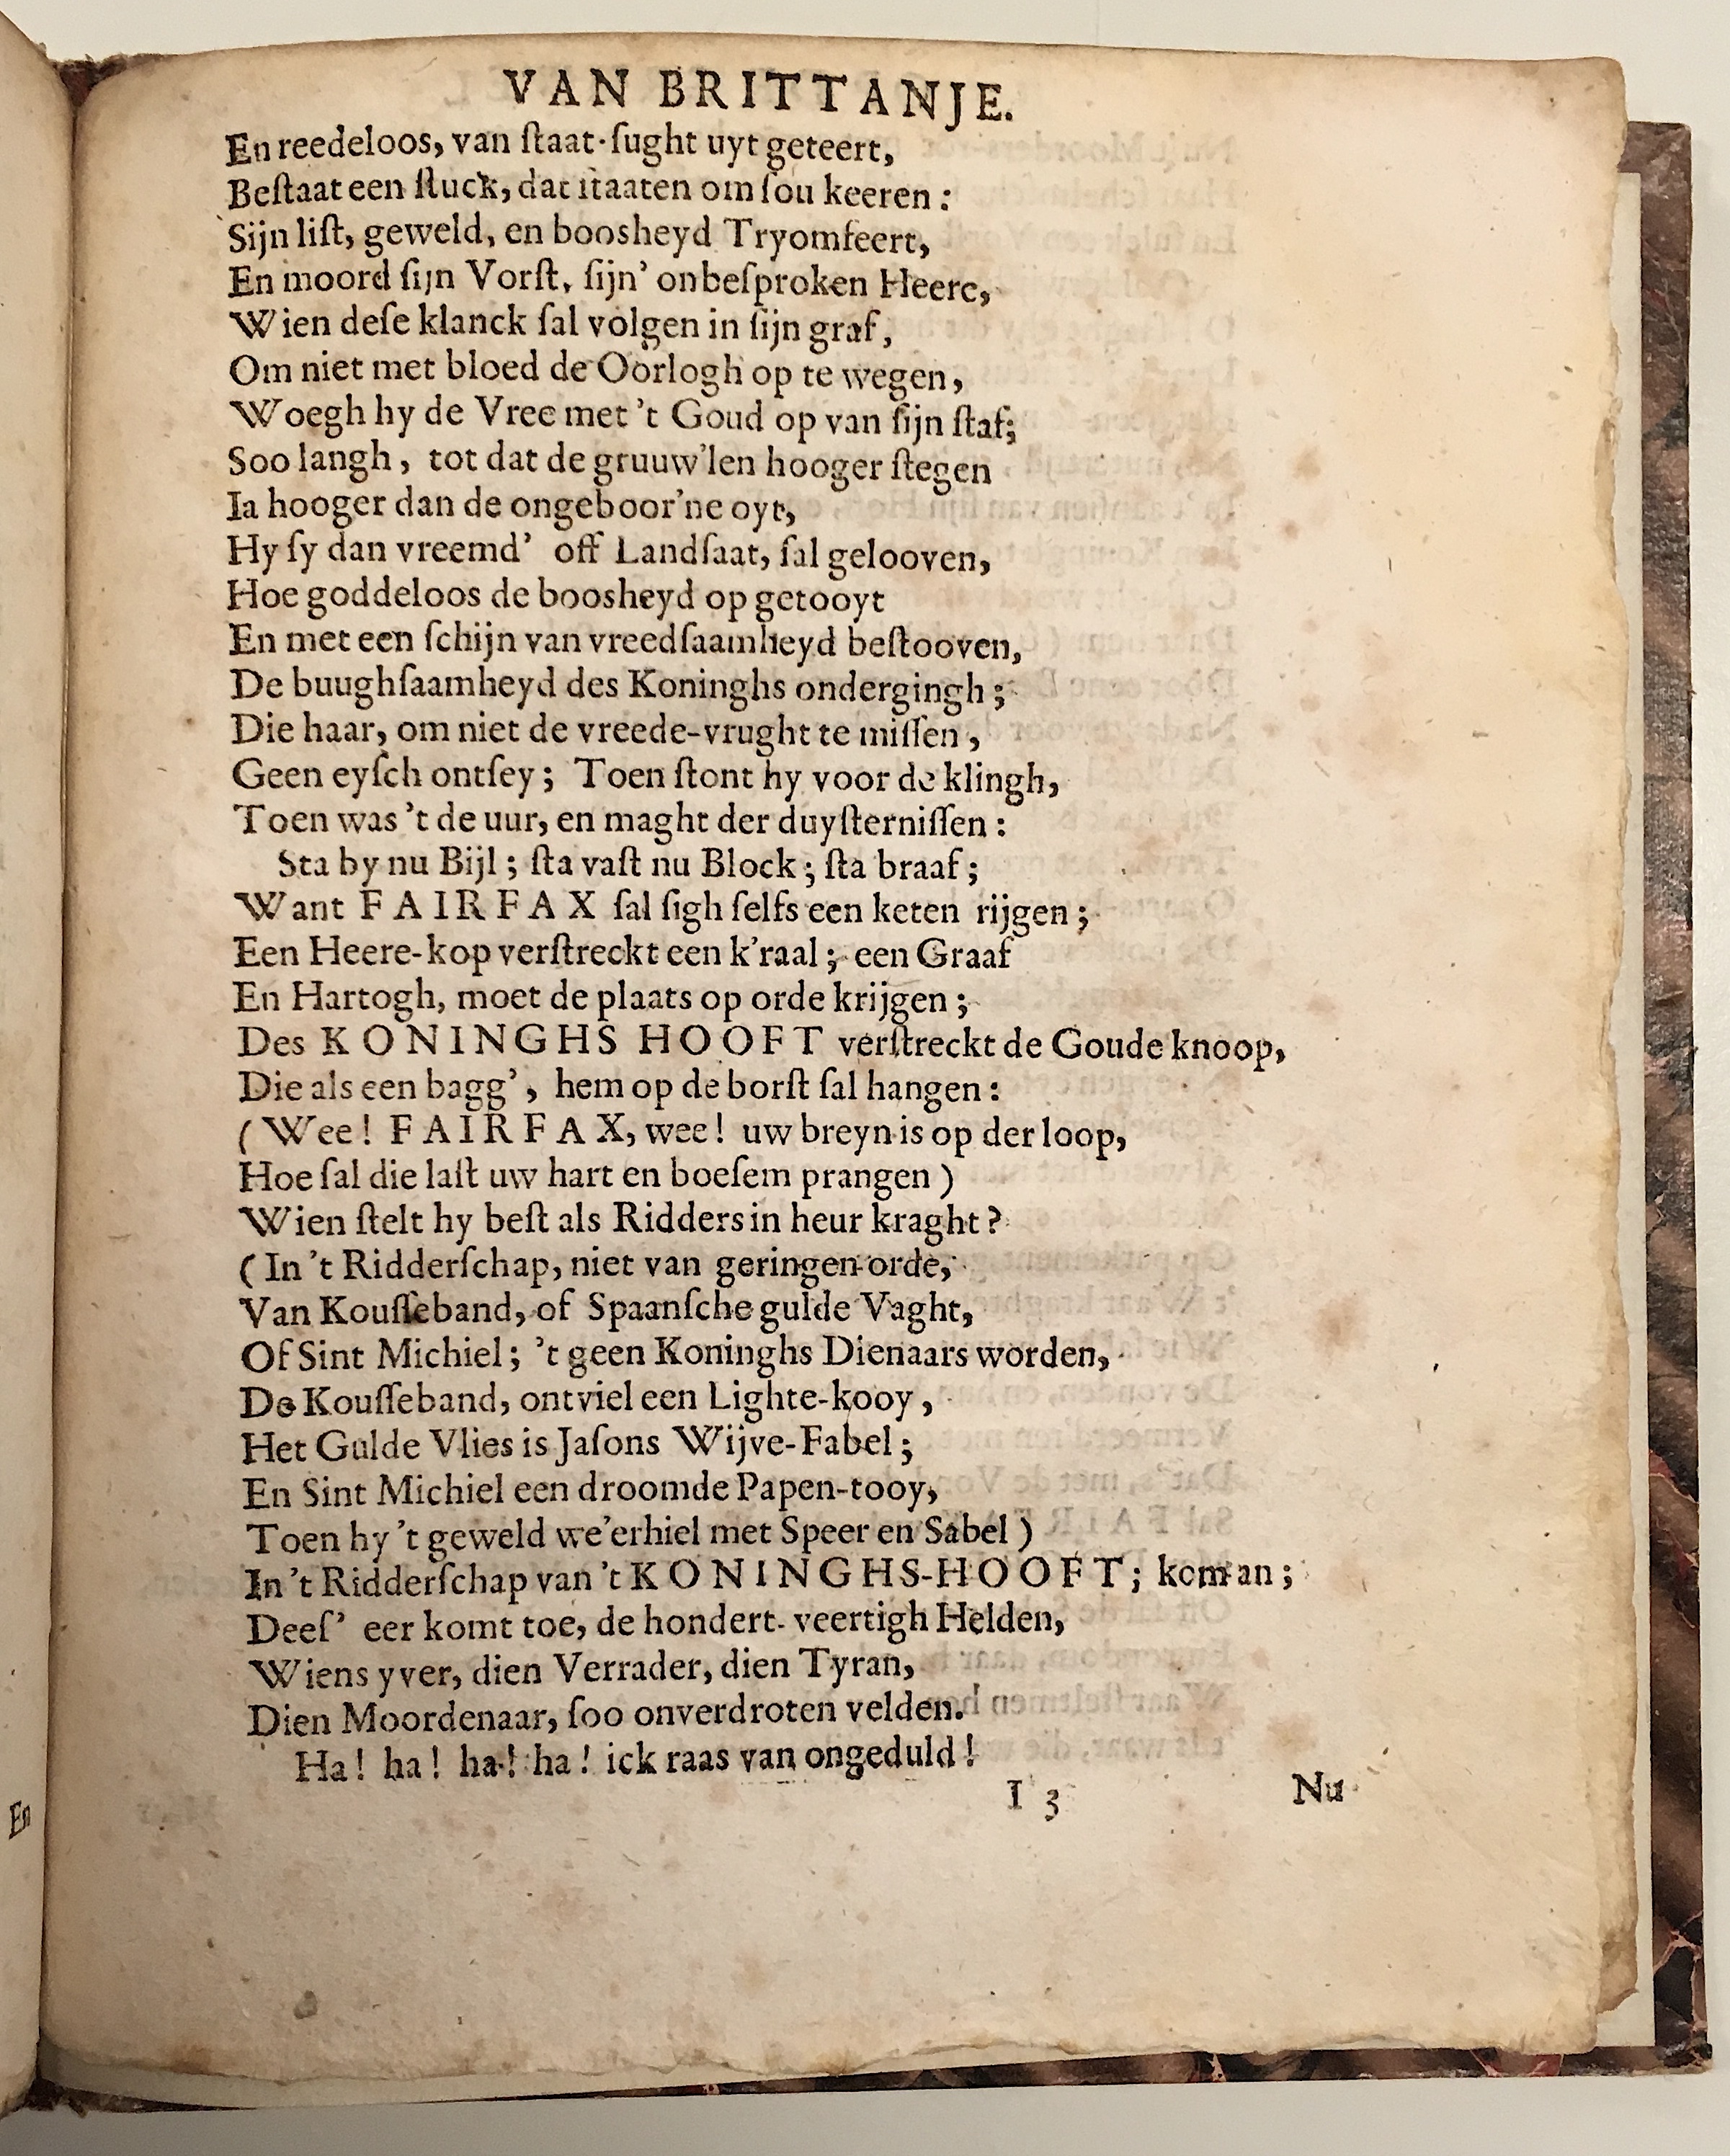 VAN BRITTANJE.
En reedeloos, van ſtaat-ſught uyt geteert,
Beſtaat een ſtuck, dat ſtaaten om ſou keeren :
Sijn liſt, geweld, en boosheyd Tryomfeert,
En moord ſijn Vorſt, ſijn' onbeſproken Heere,
Wien deſe klanck ſal volgen in ſijn graf,
Om niet met bloed de Oorlogh op te wegen,
Woegh hy de Vree met 't Goud op van ſijn ſtaf;
Soo langh, tot dat de gruuw'len hooger ſtegen
Ia hooger dan de ongeboor'ne oyt,
Hy ſy dan vreemd' off Landſaat, ſal gelooven,
Hoe goddeloos de boosheyd op getooyt
En met een ſchijn van vreedſaamheyd beſtooven,
De buughſaamheyd des Koninghs ondergingh ;
Die haar, om niet de vreede-vrught te miſſen,
Geen eyſch ontſey ; Toen ſtont hy voor de klingh,
Toen was 't de uur, en maght der duyſterniſſen :
Sta by nu Bijl ; ſta vaſt nu Block ; ſta braaf ;
Want FAIRFAX ſal ſigh ſelfs een keten rijgen ;
Een Heere-kop verſtreckt een k'raal ; een Graaf
En Hartogh, moet de plaats op orde krijgen ;
Des KONINGHS HOOFT verſtreckt de Goude knoop,
Die als een bagg', hem op de borſt ſal hangen :
( Wee ! FAIRFAX, wee ! uw breyn is op der loop,
Hoe ſal die laſt uw hart en boeſem prangen )
Wien ſtelt hy beſt als Ridders in heur kraght ?
( In 't Ridderſchap, niet van geringen orde,
Van Kouſſeband, of Spaanſche gulde Vaght,
Of Sint Michiel ; 't geen Koninghs Dienaars worden,
De Kouſſeband, ontviel een Lighte-kooy,
Het Gulde Vlies is Jaſons Wijve-Fabel ;
En Sint Michiel een droomde Papen-tooy,
Toen hy 't geweld we'erhiel met Speer en Sabel )
In 't Ridderſchap van 't KONINGHS-HOOFT ; kom an ;
Deeſ' eer komt toe, de hondert-veertigh Helden,
Wiens yver, dien Verrader, dien Tyran,
Dien Moordenaar, ſoo onverdroten velden.
Ha ! ha ! ha ! ha ! ick raas van ongeduld !
I 3 Nu
En